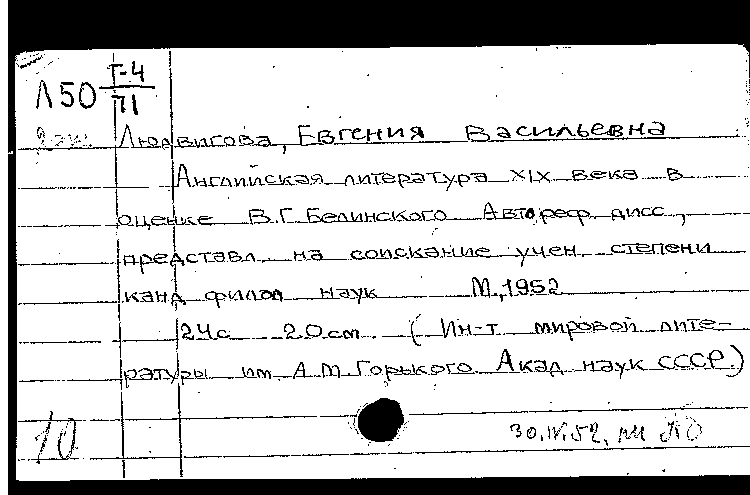 Л50 Т-4/71
2 экз. Людвигова, Евгения Васильевна
Английская литература XIX века в
оценке В.Г. Белинского. Автореф. дисс.,
представл. на соискание учен. степени
канд. филол. наук. М., 1952
24с. 20 см. (Ин-т мировой лите-
ратуры им. А.М. Горького. Акад. наук СССР.)
10
30.IV.52.